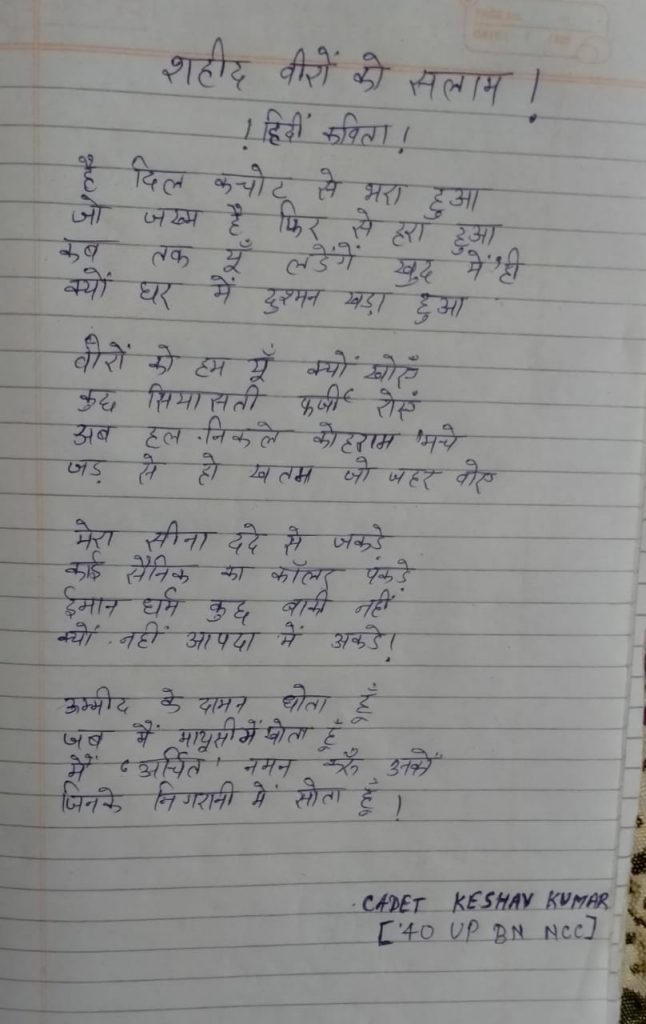 शहीद वीरों को सलाम !
! हिंदी कविता !
है दिल कचोट से भरा हुआ
जो जख्म है फिर से हरा हुआ
कब तक यूँ लडेंगें खुद में ही
क्यों घर में दुश्मन खड़ा हुआ
वीरों को हम यूँ क्यों खोएँ
कुछ सियासती फर्जी रोएँ
अब हल निकले कोहराम मचे
जड़ से हो खतम जो जहर बोए
मेरा सीना दर्द से जकडे
कोई सैनिक का कॉलर पकड़े
ईमान धर्म कुछ बाकी नहीं
क्यों नहीं आपदा में अकडे!
उम्मीद के दामन धोता हूँ
जब मैं मायूसी में होता हूँ
मैं 'अर्चित' नमन करूँ उनकों
जिनके निगरानी में सोता हूँ !
CADET KESHAV KUMAR
['40 UP BN NCC]